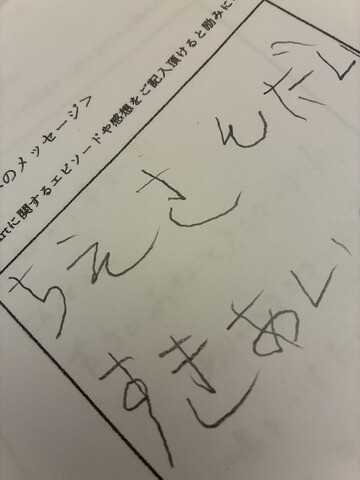 のメッセージ>
に関するエピソードや感想をご記入頂けると励みに
ちえさんだい
すきあい